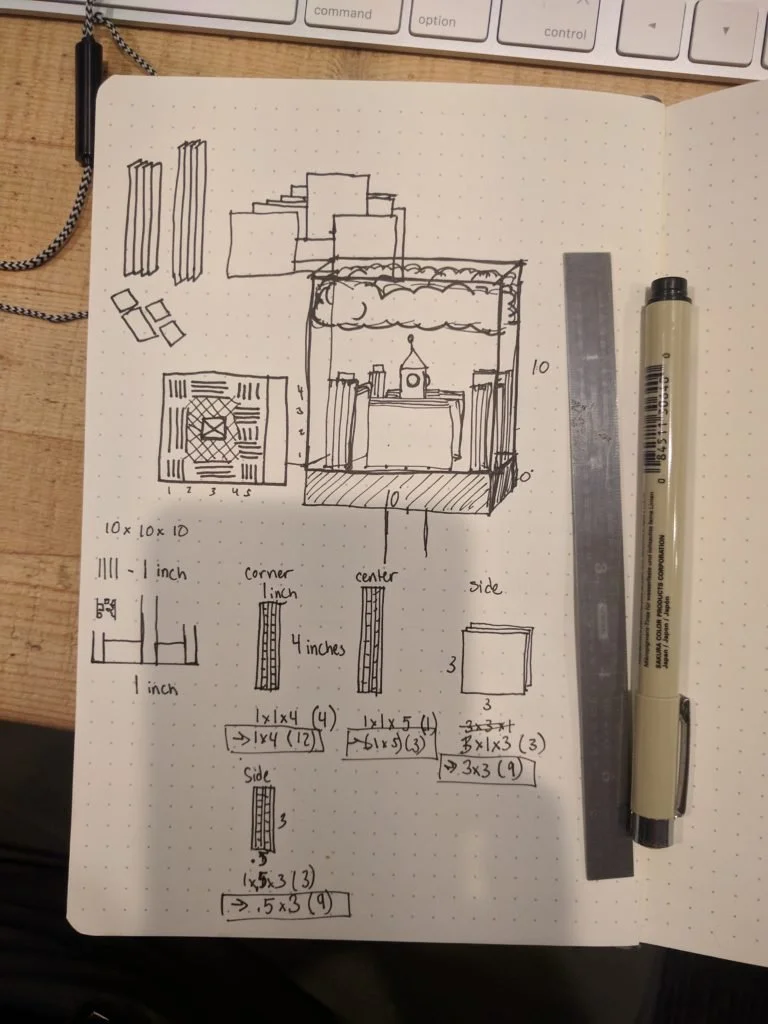 command
option
control
10
4
3
2
1
1 2 3 4 5
10
10 x 10 x 10
|||| - 1 inch
1 inch
corner
1 inch
4 inches
1x1x4 (4)
→ 1x4 (12)
center
1x1x5 (1)
side
3
3
3x3x1
3x1x3 (3)
→ 3x3 (9)
Side
3
.5
1x.5x3 (3)
→ .5x3 (9)
0 84511 30640 0
SAKURA COLOR PRODUCTS CORPORATION
Japan / Japon / Japón